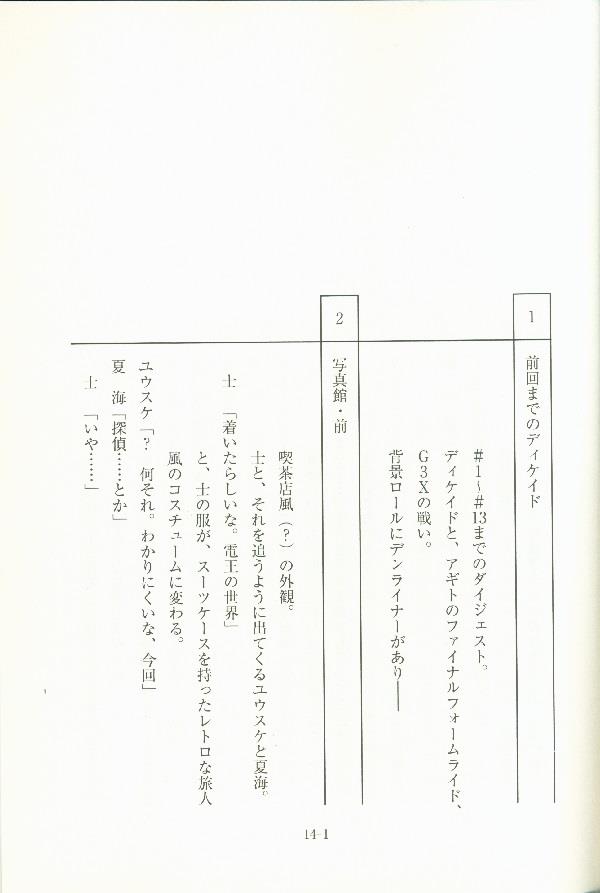 1
前回までのディケイド
#1~#13までのダイジェスト。
ディケイドと、アギトのファイナルフォームライド、
G3Xの戦い。
背景ロールにデンライナーがあり――
2
写真館・前
喫茶店風(?)の外観。
士と、それを追うように出てくるユウスケと夏海。
士 「着いたらしいな。電王の世界」
と、士の服が、スーツケースを持ったレトロな旅人
風のコスチュームに変わる。
ユウスケ「? 何それ。わかりにくいな、今回」
夏 海「探偵……とか」
士 「いや……」
14-1